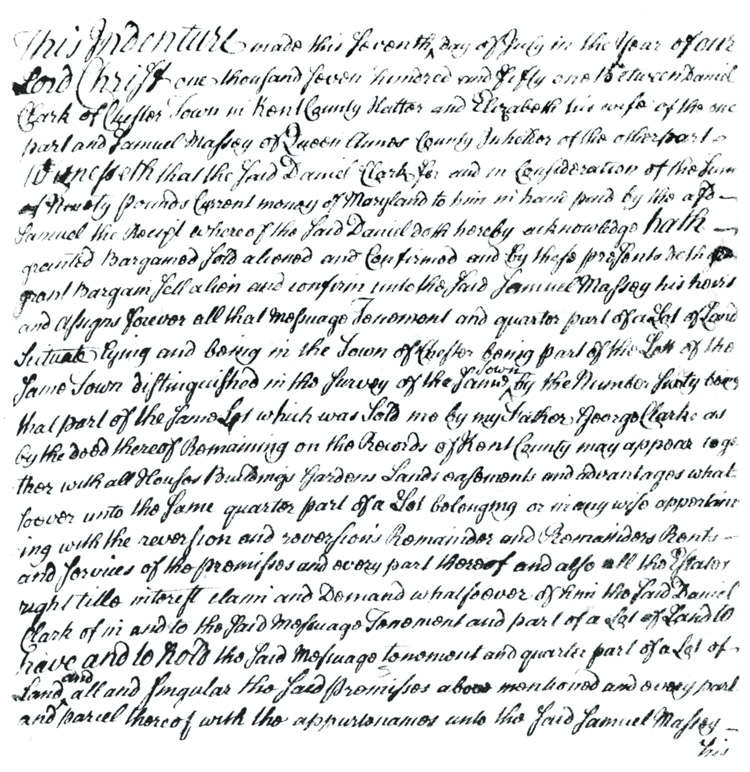 This Indenture made this Seventh day of July in the Year of our
Lord Christ one thousand Seven hundred and fifty one Between Daniel
Clark of Chester Town in Kent County Hatter and Elizabeth his wife of the one
part and Samuel Massey of Queen Annes County Inholder of the other part
Witnesseth that the Said Daniel Clark for and in Consideration of the Sum
of Ninety pounds Current money of Maryland to him in hand paid by the afd
Samuel the Receipt whereof the Said Daniel doth hereby acknowledge hath
granted Bargained Sold aliened and Confirmed and by these presents doth
grant Bargain Sell alien and confirm unto the Said Samuel Massey his heirs
and Assigns forever all that Messuage Tenement and quarter part of a Lot of Land
Scituate Lying and being in the Town of Chester being part of the Lott of the
Same Town distinguished in the Survey of the Same Town by the Number Sixty being
that part of the Same Lot which was Sold me by my Father George Clark as
by the deed thereof Remaining on the Records of Kent County may appear toge
ther with all Houses Buildings Gardens Lands easements and advantages what
soever unto the Same quarter part of a Lot belonging or in any wise appertain
ing with the reversion and reversions Remainder and Remainders Rents
and Services of the premisses and every part thereof and also all the Estate
right title interest claim and Demand whatsoever of him the Said Daniel
Clark of in and to the Said Messuage Tenement and part of a Lot of Land to
have and to hold the Said Messuage tenement and quarter part of a Lot of
Land and all and Singular the Said premisses above mentioned and every part
and parcel thereof with the appurtenances unto the Said Samuel Massey
his